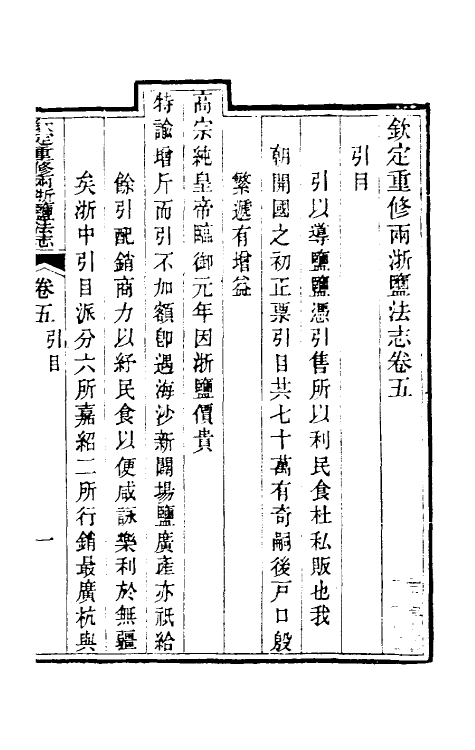 欽定重修兩浙鹽法志卷五
引目
引以導鹽鹽憑引售所以利民食杜私販也我
朝開國之初正票引目共七十萬有奇嗣後戸口殷
繁遞有增益
高宗純皇帝臨御元年因浙鹽價貴
特諭增斤而引不加額卽遇海沙新闢場鹽廣產亦祇給
餘引配銷商力以紓民食以便咸詠樂利於無疆
矣浙中引目派分六所嘉紹二所行銷最廣杭與
欽定重修兩浙鹽法志
卷五
引目
一